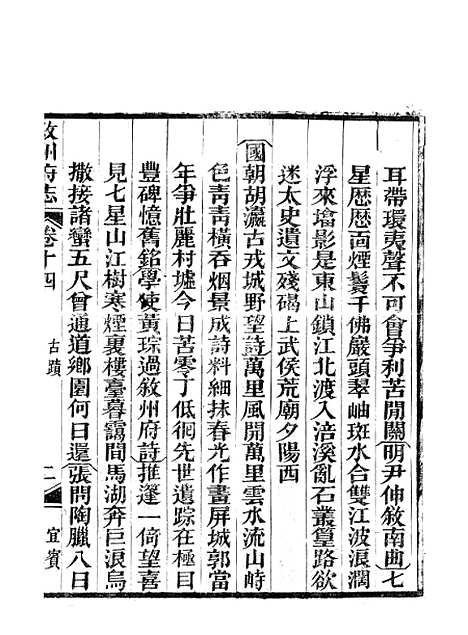 耳帶環夷聲不可會爭利苦閒關明尹伸敘南曲七
星歷歷面煙鬟千佛巖頭翠岫斑水合雙江波浪濶
浮來塔影是東山鎖江北渡入涪溪亂石叢篁路欲
迷太史遺文殘碣上武侯荒廟夕陽西
國朝胡瀛古戎城野望詩萬里風開萬里雲水流山峙
色青青橫吞烟景成詩料細抹春光作畫屏城郭當
年爭壯麗村墟今日苦零丁低徊先世遺踪在極目
豐碑憶舊銘學使黃琮過敘州府詩推篷一倚望喜
見七星山江樹寒煙裏樓臺暮靄間馬湖奔巨浪烏
撒接諸蠻五尺曾通道鄉園何日還張問陶臘八日
敘州府志
卷十四
古蹟
二
宜賓